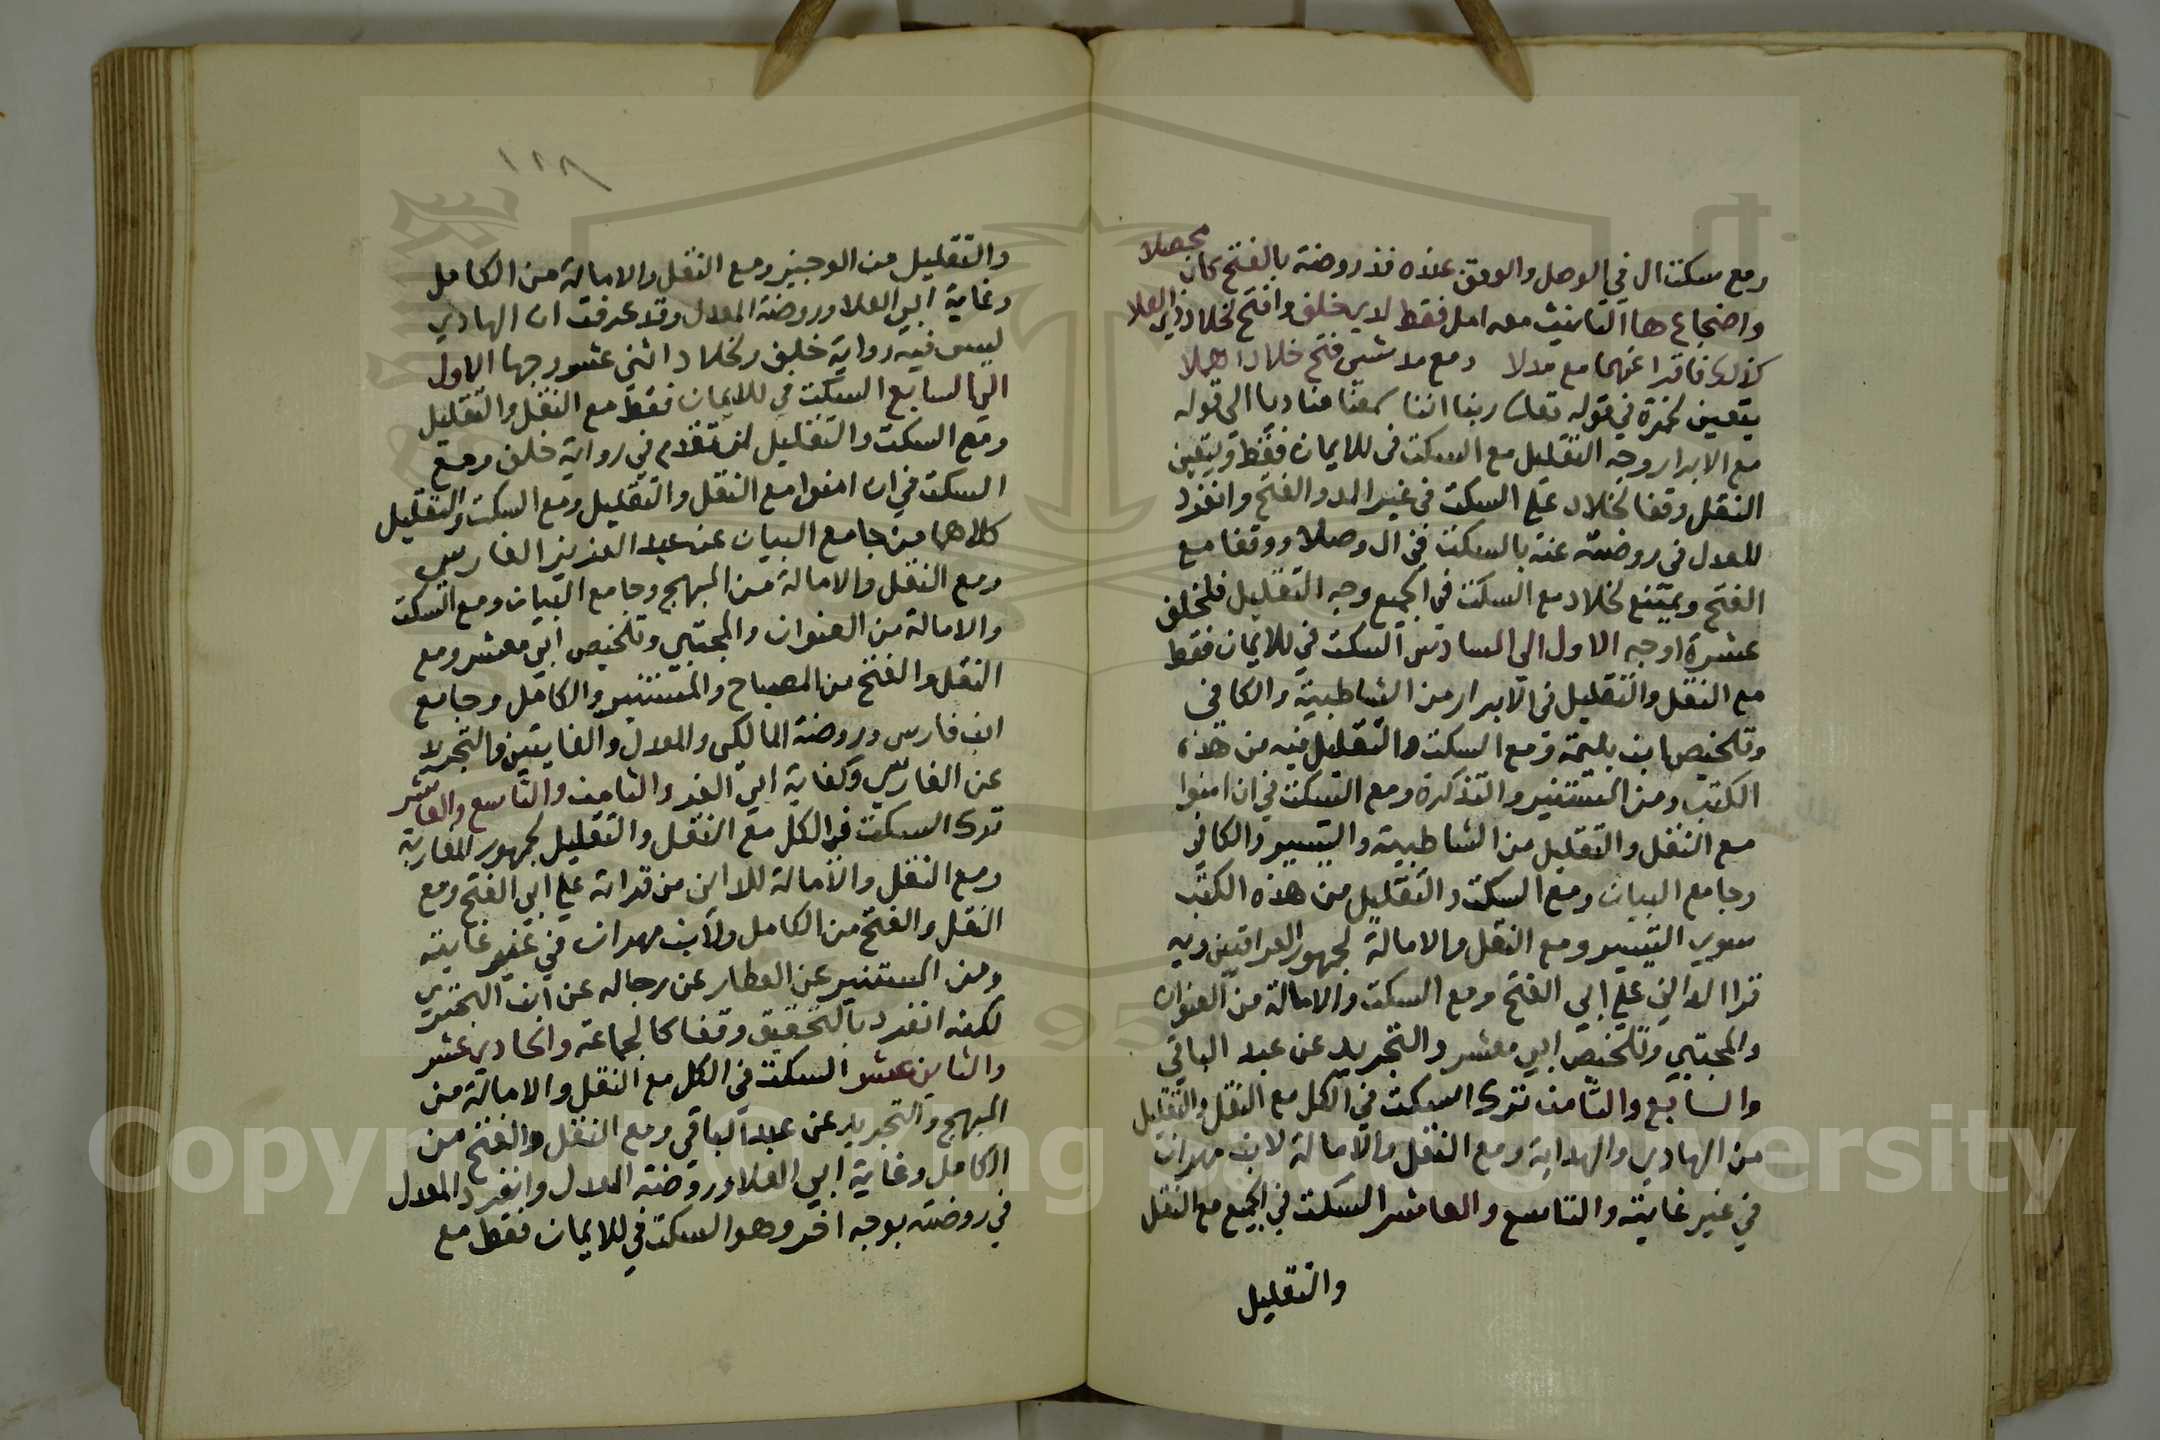 ومع سكت ال في الوصل والوقف عنده فذ روضة بالفتح كان محصلا
واضجاع ها التانيث معه امل فقط لدي خلف وافتح لخلاد ذي العلا
كذلك فاقرا عنهما مع مدلا ومع مد شيي فتح خلاد اهملا
يتعين لحمزة في قوله تعالى ربنا اننا سمعنا مناديا الى قوله
مع الابرار وجه التقليل مع السكت في للايمان فقط ويتعين
النقل وقفا لخلاد علي السكت في غير المد والفتح وانفرد
للمعدل في روضته عنه بالسكت في ال وصلا ووقفا مع
الفتح ويمتنع لخلاد مع السكت في الجميع وجه التقليل فلخلف
عشرة اوجه الاول الي السادس السكت في للايمان فقط
مع النقل والتقليل في الابرار من الشاطبية والكافي
وتلخيص ابن بليمة ومع السكت والتقليل فيه من هذه
الكتب ومن المستنير والتذكرة ومع السكت في ان امنوا
مع النقل والتقليل من الشاطبية والتيسير والكافي
وجامع البيان ومع السكت والتقليل من هذه الكتب
سوي التيسير ومع النقل والامالة لجمهور العراقيين وبه
قرا الداني علي ابي الفتح ومع السكت والامالة من العنوان
والمجتبي وتلخيص ابي معشر والتجريد عن عبد الباقي
والسابع والثامن ترك السكت في الكل مع النقل والتقليل
من الهادي والهداية ومع النقل والامالة لابن مهران
في غير غايته والتاسع والعاشر السكت في الجميع مع النقل
والتقليل
١٢٨
والتقليل من الوجيز ومع النقل والامالة من الكامل
وغاية ابي العلا وروضة المعدل وقد عرفت ان الهادي
ليس فيه رواية خلف ولخلاد اثني عشر وجها الاول
الي السابع السكت في للايمان فقط مع النقل والتقليل
ومع السكت والتقليل لمن تقدم في رواية خلف ومع
السكت في ان امنوا مع النقل والتقليل ومع السكت والتقليل
كلاهما من جامع البيان عن عبد العزيز الفارسي
ومع النقل والامالة من المبهج وجامع البيان ومع السكت
والامالة من العنوان والمجتبي وتلخيص ابي معشر ومع
النقل والفتح من المصباح والمستنير والكامل وجامع
ابن فارس وروضة المالكي والمعدل والغايتين والتجريد
عن الفارسي وكفاية ابي العز والثامن والتاسع والعاشر
ترك السكت في الكل مع النقل والتقليل لجمهور المغاربة
ومع النقل والامالة للداني من قراته علي ابي الفتح ومع
النقل والفتح من الكامل ولابن مهران في غير غايته
ومن المستنير عن العطار عن رجاله عن ابن البختري
لكنه انفرد بالتحقيق وقفا كالجماعة والحادي عشر
والثاني عشر السكت في الكل مع النقل والامالة من
المبهج والتجريد عن عبد الباقي ومع النقل والفتح من
الكامل وغاية ابي العلا وروضة المعدل وانفرد المعدل
في روضته بوجه اخر وهو السكت في للايمان فقط مع
Copyright © King Saud University